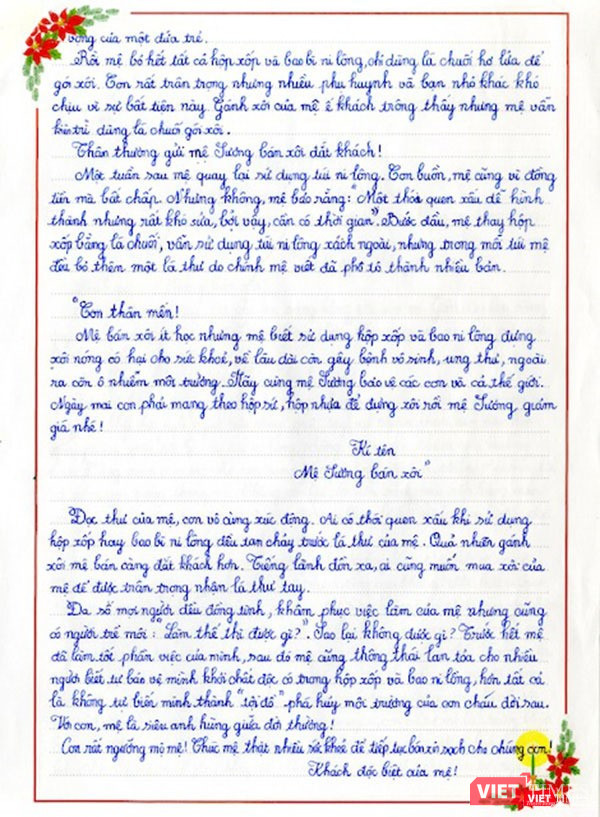 vọng của một đứa trẻ.
Rồi mệ bỏ hết tất cả hộp xốp và bao bì ni lông, chỉ dùng lá chuối hơ lửa để
gói xôi. Con rất trân trọng nhưng nhiều phụ huynh và bạn nhỏ khác khó
chịu vì sự bất tiện này. Gánh xôi của mệ ế khách trông thấy nhưng mệ vẫn
kiên trì dùng lá chuối gói xôi.
Thân thương gửi mệ Sương bán xôi đắt khách!
Một tuần sau mệ quay lại sử dụng túi ni lông. Con buồn, mệ cũng vì đồng
tiền mà bất chấp. Nhưng không, mệ bảo rằng: "Một thói quen xấu dễ hình
thành nhưng rất khó sửa, bởi vậy, cần có thời gian". Bước đầu, mệ thay hộp
xốp bằng lá chuối, vẫn sử dụng túi ni lông xách ngoài, nhưng trong mỗi túi mệ
đều bỏ thêm một lá thư do chính mệ viết đã phô tô thành nhiều bản.
"Con thân mến!
Mệ bán xôi ít học nhưng mệ biết sử dụng hộp xốp và bao ni lông đựng
xôi nóng có hại cho sức khoẻ, về lâu dài còn gây bệnh vô sinh, ung thư, ngoài
ra còn ô nhiễm môi trường. Hãy cùng mệ Sương bảo vệ các con và cả thế giới.
Ngày mai con phải mang theo hộp sứ, hộp nhựa để đựng xôi rồi mệ Sương giảm
giá nhé!
Kí tên
Mệ Sương bán xôi"
Đọc thư của mệ, con vô cùng xúc động. Ai có thói quen xấu khi sử dụng
hộp xốp hay bao bì ni lông đều tan chảy trước lá thư của mệ. Quả nhiên gánh
xôi mệ bán càng đắt khách hơn. Tiếng lành đồn xa, ai cũng muốn mua xôi của
mệ để được trân trọng nhận lá thư tay.
Đa số mọi người đều đồng tình, khâm phục việc làm của mệ nhưng cũng
có người trề môi: "Làm thế thì được gì?" Sao lại không được gì? Trước hết mệ
đã làm tốt phần việc của mình, sau đó mệ cũng thông thái lan tỏa cho nhiều
người biết tự bảo vệ mình khỏi chất độc có trong hộp xốp và bao ni lông, hơn tất cả
là không tự biến mình thành "tội đồ" phá hủy môi trường của con cháu đời sau.
Với con, mệ là siêu anh hùng giữa đời thường!
Con rất ngưỡng mộ mệ! Chúc mệ thật nhiều sức khoẻ để tiếp tục bán xôi sạch cho chúng con!
Khách đặc biệt của mệ!
VIETTIMES
VIET